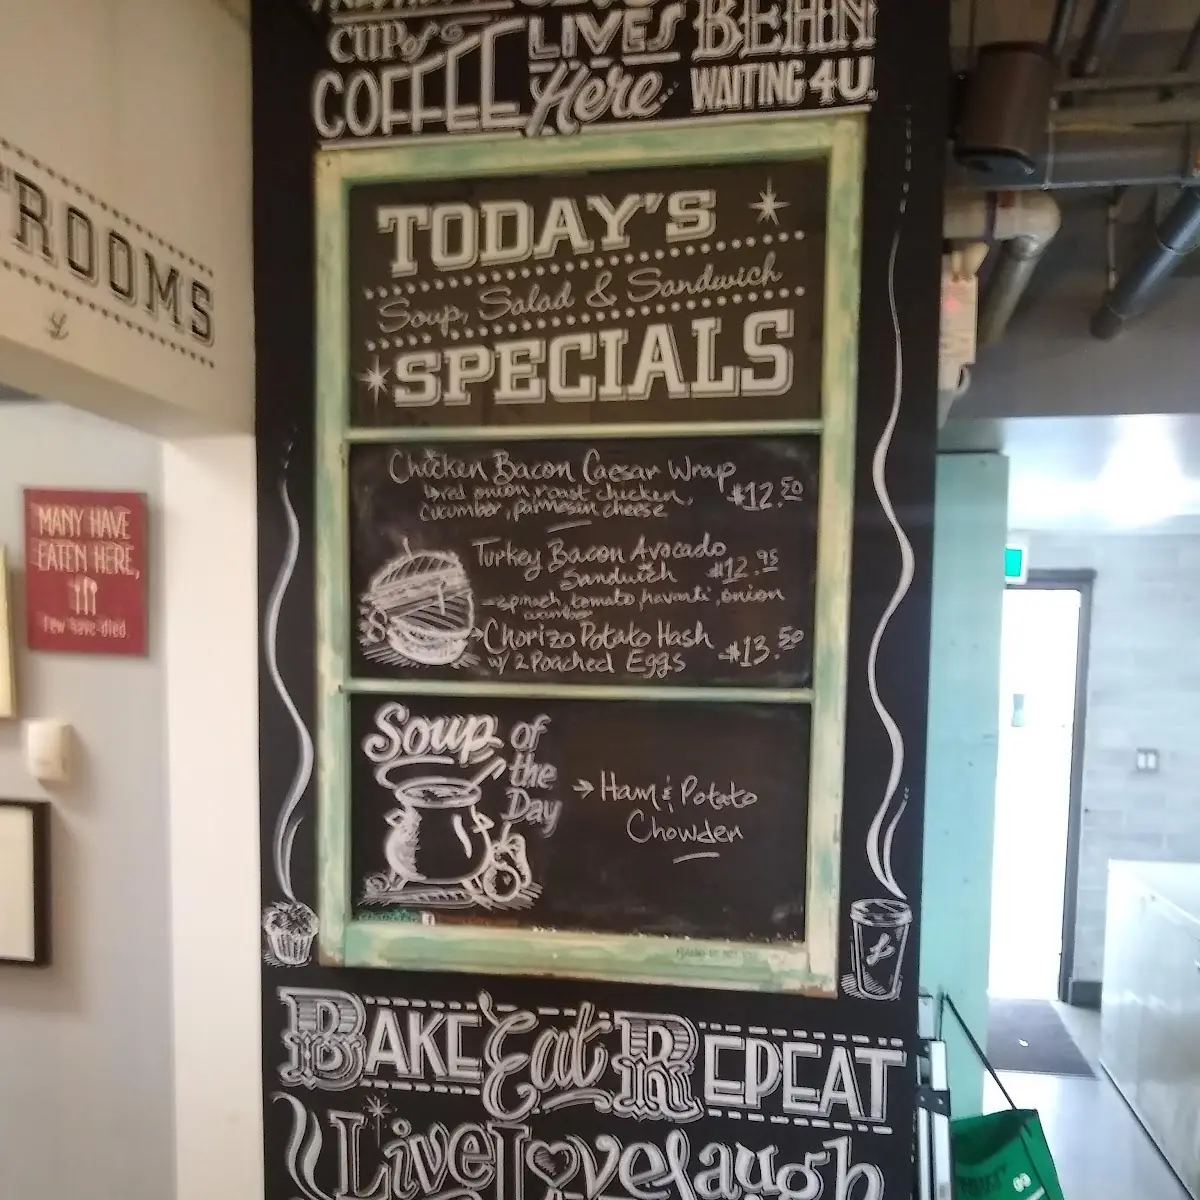 CUP of LIVES BEHN
COFFEE Here WAITING 4U.
ROOMS
TODAY'S
Soup, Salad & Sandwich
SPECIALS
Chicken Bacon Caesar Wrap $12.50
red onion, roast chicken,
cucumber, parmesan cheese
Turkey Bacon Avocado
Sandwich $12.95
spinach, tomato, havarti, onion
cucumber
Chorizo Potato Hash $13.50
w/ 2 Poached Eggs
MANY HAVE
EATEN HERE,
Few have died.
Soup of
the
Day
→ Ham & Potato
Chowder
BAKE Eat REPEAT
Live Love Laugh